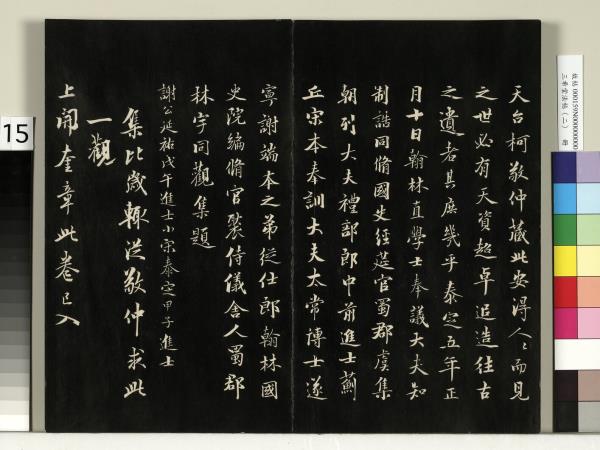 天台柯敬仲藏此安得人〻而見
之世必有天資超卓追造往古
之遺者其庶幾乎泰定五年正
月十日翰林直學士奉議大夫知
制誥同脩國史經筵官蜀郡虞集
朝列大夫禮部郎中前進士薊
丘宋本奉訓大夫太常博士遂
寧謝端本之弟從仕郎翰林國
史院編脩官褧侍儀舍人蜀郡
林宇同觀集題
謝公延祐戊午進士小宋泰定甲子進士
集比歲輒從敬仲求此
一觀
上開奎章此卷已入
15
故帖 000159N000000000
三希堂法帖(二) 冊